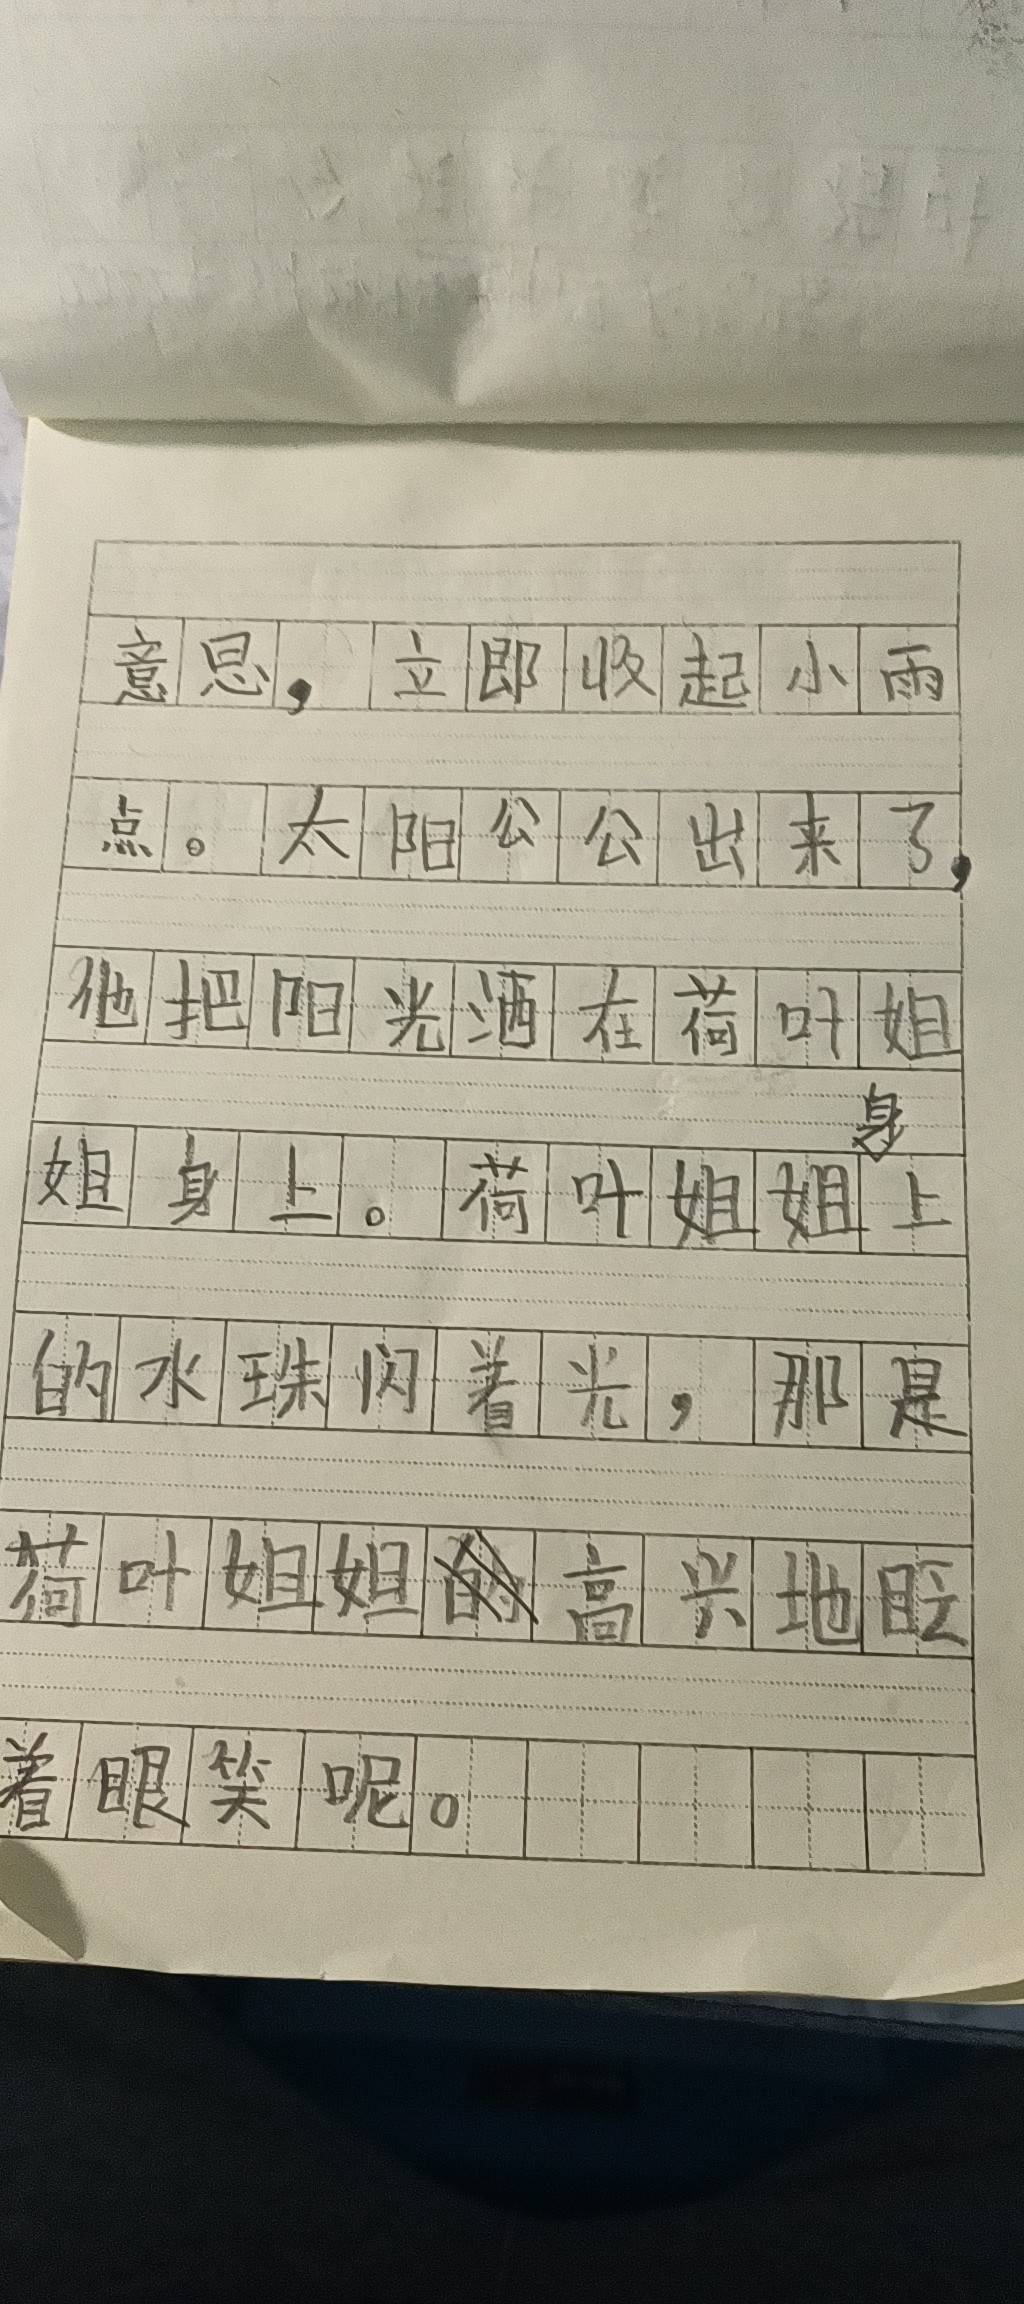 意思，立即收起小雨
点。太阳公公出来了，
他把阳光洒在荷叶姐
姐身上。荷叶姐姐身上
的水珠闪着光，那是
荷叶姐姐高兴地眨
着眼笑呢。